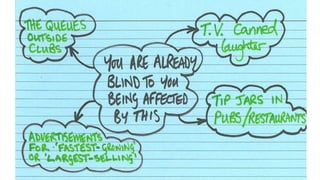 THE QUEUES
OUTSIDE
CLUBS
T.V. Canned
laughter
YOU ARE ALREADY
BLIND TO YOU
BEING AFFECTED
BY THIS
ADVERTISEMENTS
FOR 'FASTEST-GROWING
OR 'LARGEST-SELLING'
TIP JARS IN
PUBS/RESTAURANTS